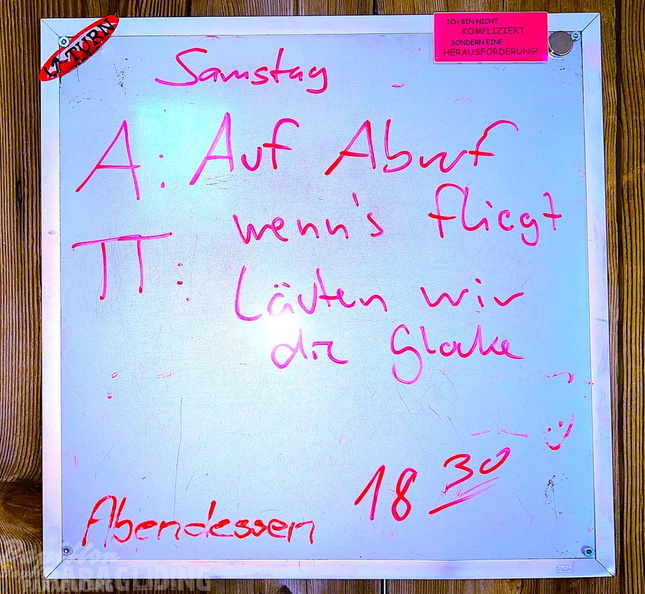 U-TURN
ICH BIN NICHT
KOMPLIZIERT,
SONDERN EINE
HERAUSFORDERUNG!
Samstag
A: Auf Abruf
wenn's fliegt
π:
Läuten wir
die Glocke
18 30
Abendessen
PARAGLIDING